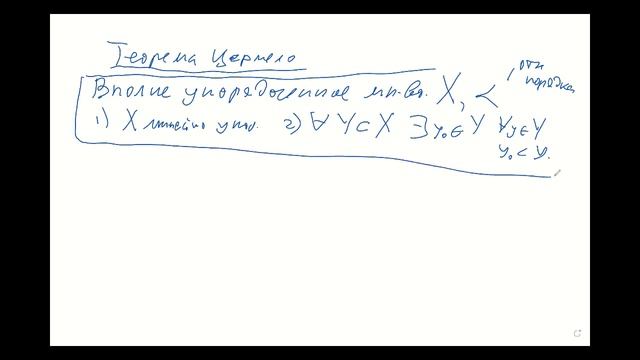 Теорема Цермело
Вполне упорядоченное мн-во. X, <
отн порядка
1) X линейно упор. 2) ∀ Y ⊂ X ∃ y₀ ∈ Y ∀ y ∈ Y
y₀ < y.